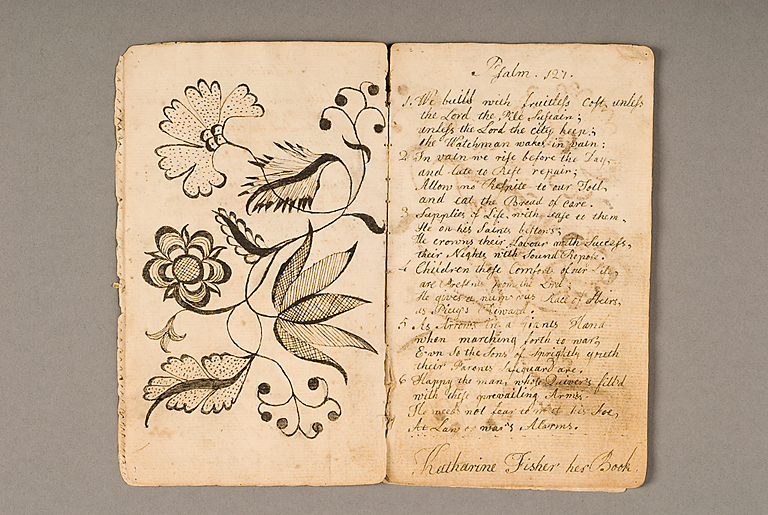 Psalm. 127.
1. We build with fruitless Cost, unless
the Lord the Pile Sustain;
unless the Lord the city keep;
the Watchman wakes in vain:
2 In vain we rise before the Day,
and late to Rest repair;
Allow no Respite to our Toil,
and eat the Bread of Care.
3 Supplies of Life, with ease to them,
He on his Saints bestows;
He crowns their Labour with Success,
their Nights with Sound Repose.
4 Children those Comforts of our Life,
are Presents from the Lord;
He gives a num'rous Race of Heirs,
as Reward.
5 As Arrows in a Giants Hand
when marching forth to war,
Even So the Sons of Sprightly youth
their Parents Safeguard are.
6 Happy the man, whose Quiver's fill'd
with these prevailing Arms.
He needs not fear to meet his Foe,
At Law or war's Alarms.
Katharine Fisher her Book